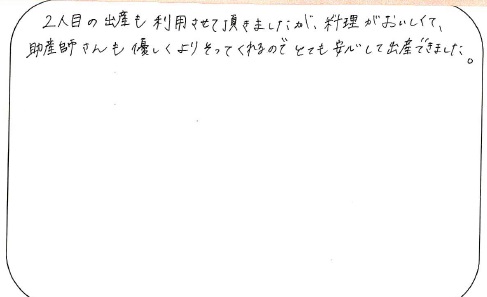 2人目の出産も利用させて頂きましたが、料理がおいしくて、
助産師さんも優しくよりそってくれるのでとても安心して出産できました。